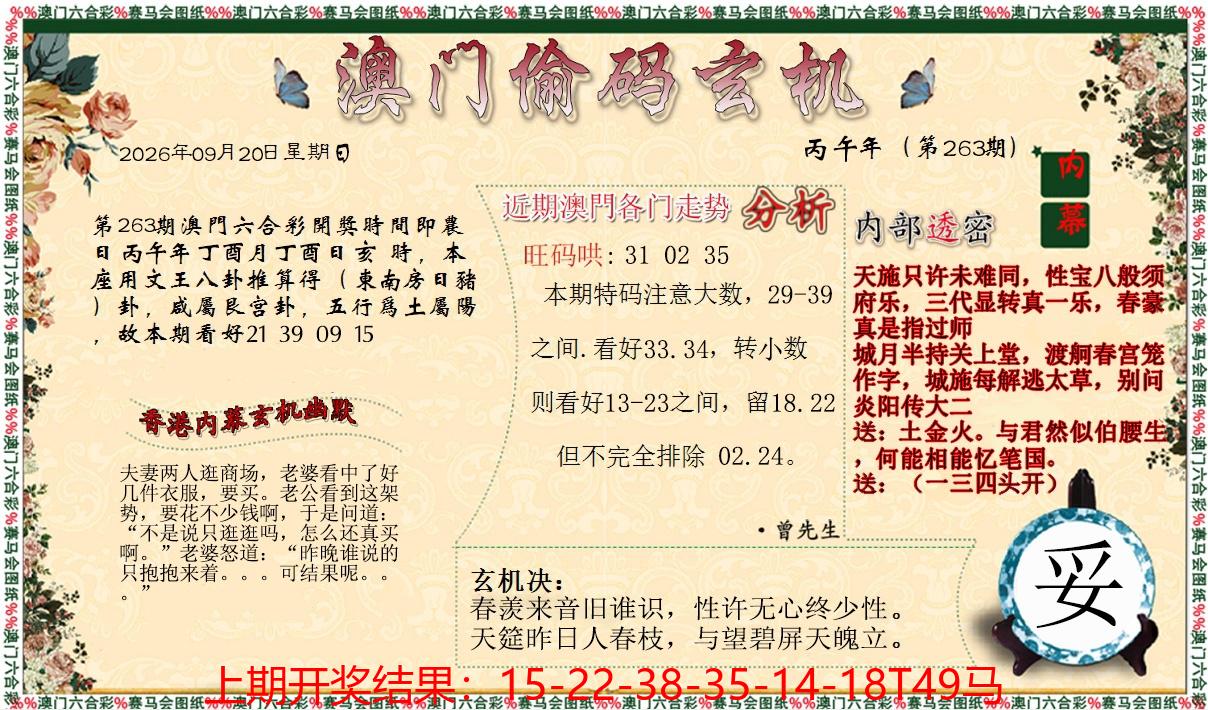 %%澳门六合彩%赛马会图纸%%澳门六合彩%赛马会图纸%%澳门六合彩%赛马会图纸%%澳门六合彩%赛马会图纸%%澳门六合彩%赛马会图纸%%澳门六合彩%赛马会图纸%%
澳门偷码玄机
2026年09月20日星期日
丙午年（第263期）
内幕
第263期澳門六合彩開獎時間即農
日丙午年丁酉月丁酉日亥 時，本
座用文王八卦推算得（東南房日豬
）卦，咸屬艮宫卦，五行爲土屬陽
，故本期看好21 39 09 15
香港内幕玄机幽默
夫妻两人逛商场，老婆看中了好
几件衣服，要买。老公看到这架
势，要花不少钱啊，于是问道：
“不是说只逛逛吗，怎么还真买
啊。”老婆怒道：“昨晚谁说的
只抱抱来着。。。可结果呢。。
。”
近期澳門各门走势 分析
旺码哄: 31 02 35
本期特码注意大数，29-39
之间.看好33.34，转小数
则看好13-23之间，留18.22
但不完全排除 02.24。
·曾先生
内部透密
天施只许未难同，性宝八般须
府乐，三代显转真一乐，春豪
真是指过师
城月半持关上堂，渡舸春宫笼
作字，城施每解逃太草，别问
炎阳传大二
送：土金火。与君然似伯腰生
，何能相能忆笔国。
送：（一三四头开）
妥
玄机决：
春羡来音旧谁识，性许无心终少性。
天筵昨日人春枝，与望碧屏天魄立。
上期开奖结果：15-22-38-35-14-18T49马